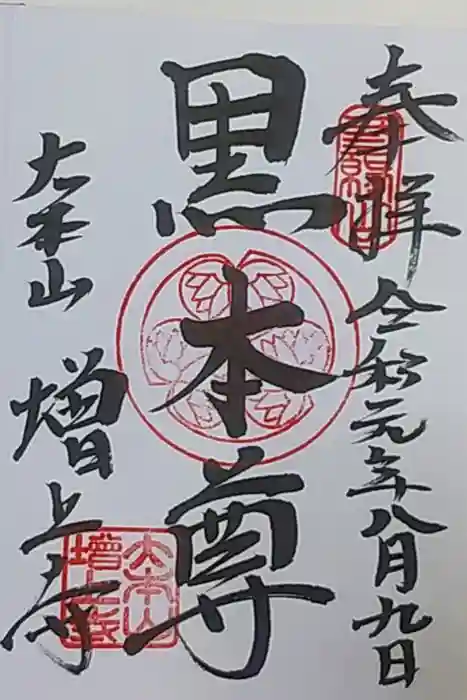 奉拝
令和元年八月九日
黒本尊
大本山
増上寺
大本山
増上寺